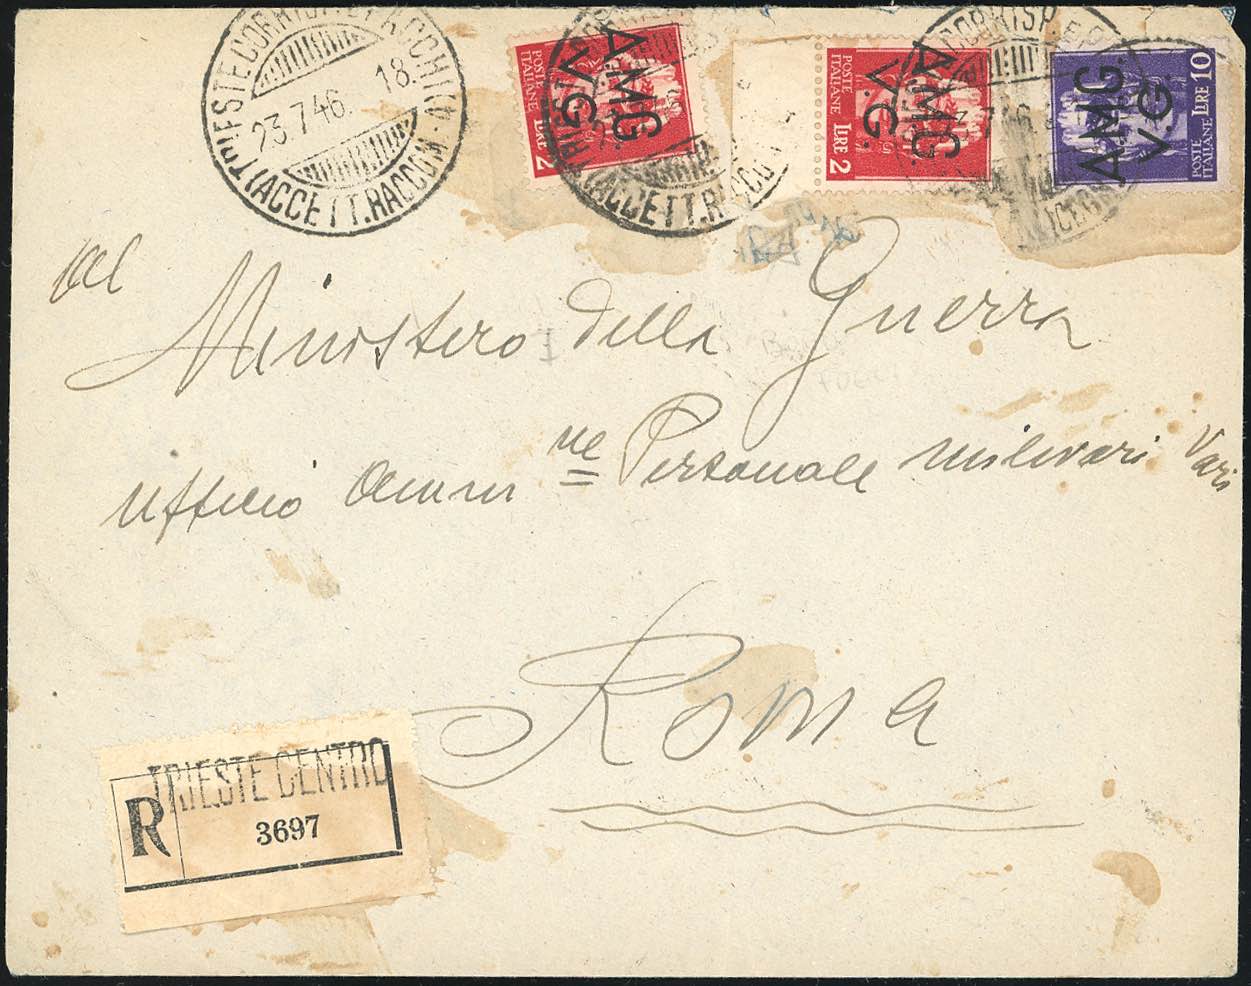 TRIESTE CORRISP. E PACCHI
23.7.46. 18.
(ACCETT. RACCOM.)
POSTE ITALIANE
LIRE 2
AMG
V.G.
POSTE ITALIANE
LIRE 2
AMG
V.G.
POSTE ITALIANE
LIRE 10
AMG
V.G.
Al
Ministero della Guerra
Ufficio Ammne Personale militari Vari
Roma
TRIESTE CENTRO
R
3697